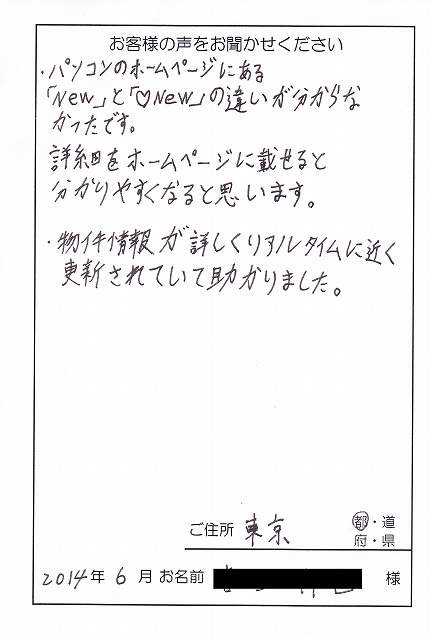 お客様の声をお聞かせください
・パソコンのホームページにある
「New」と「♡New」の違いが分からな
かったです。
詳細をホームページに載せると
分かりやすくなると思います。
・物件情報が詳しくリアルタイムに近く
更新されていて助かりました。
ご住所 東京 都・道
府・県
2014年 6月 お名前 様